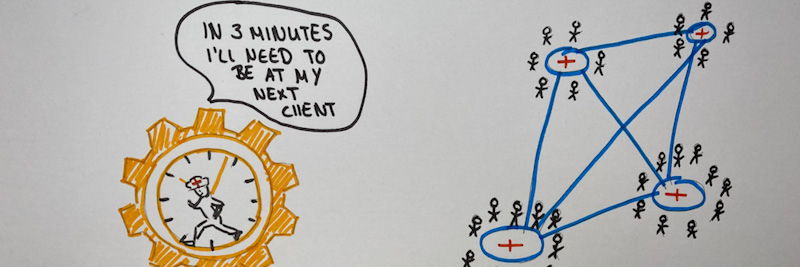 IN 3 MINUTES
I'LL NEED TO
BE AT MY
NEXT
CLIENT